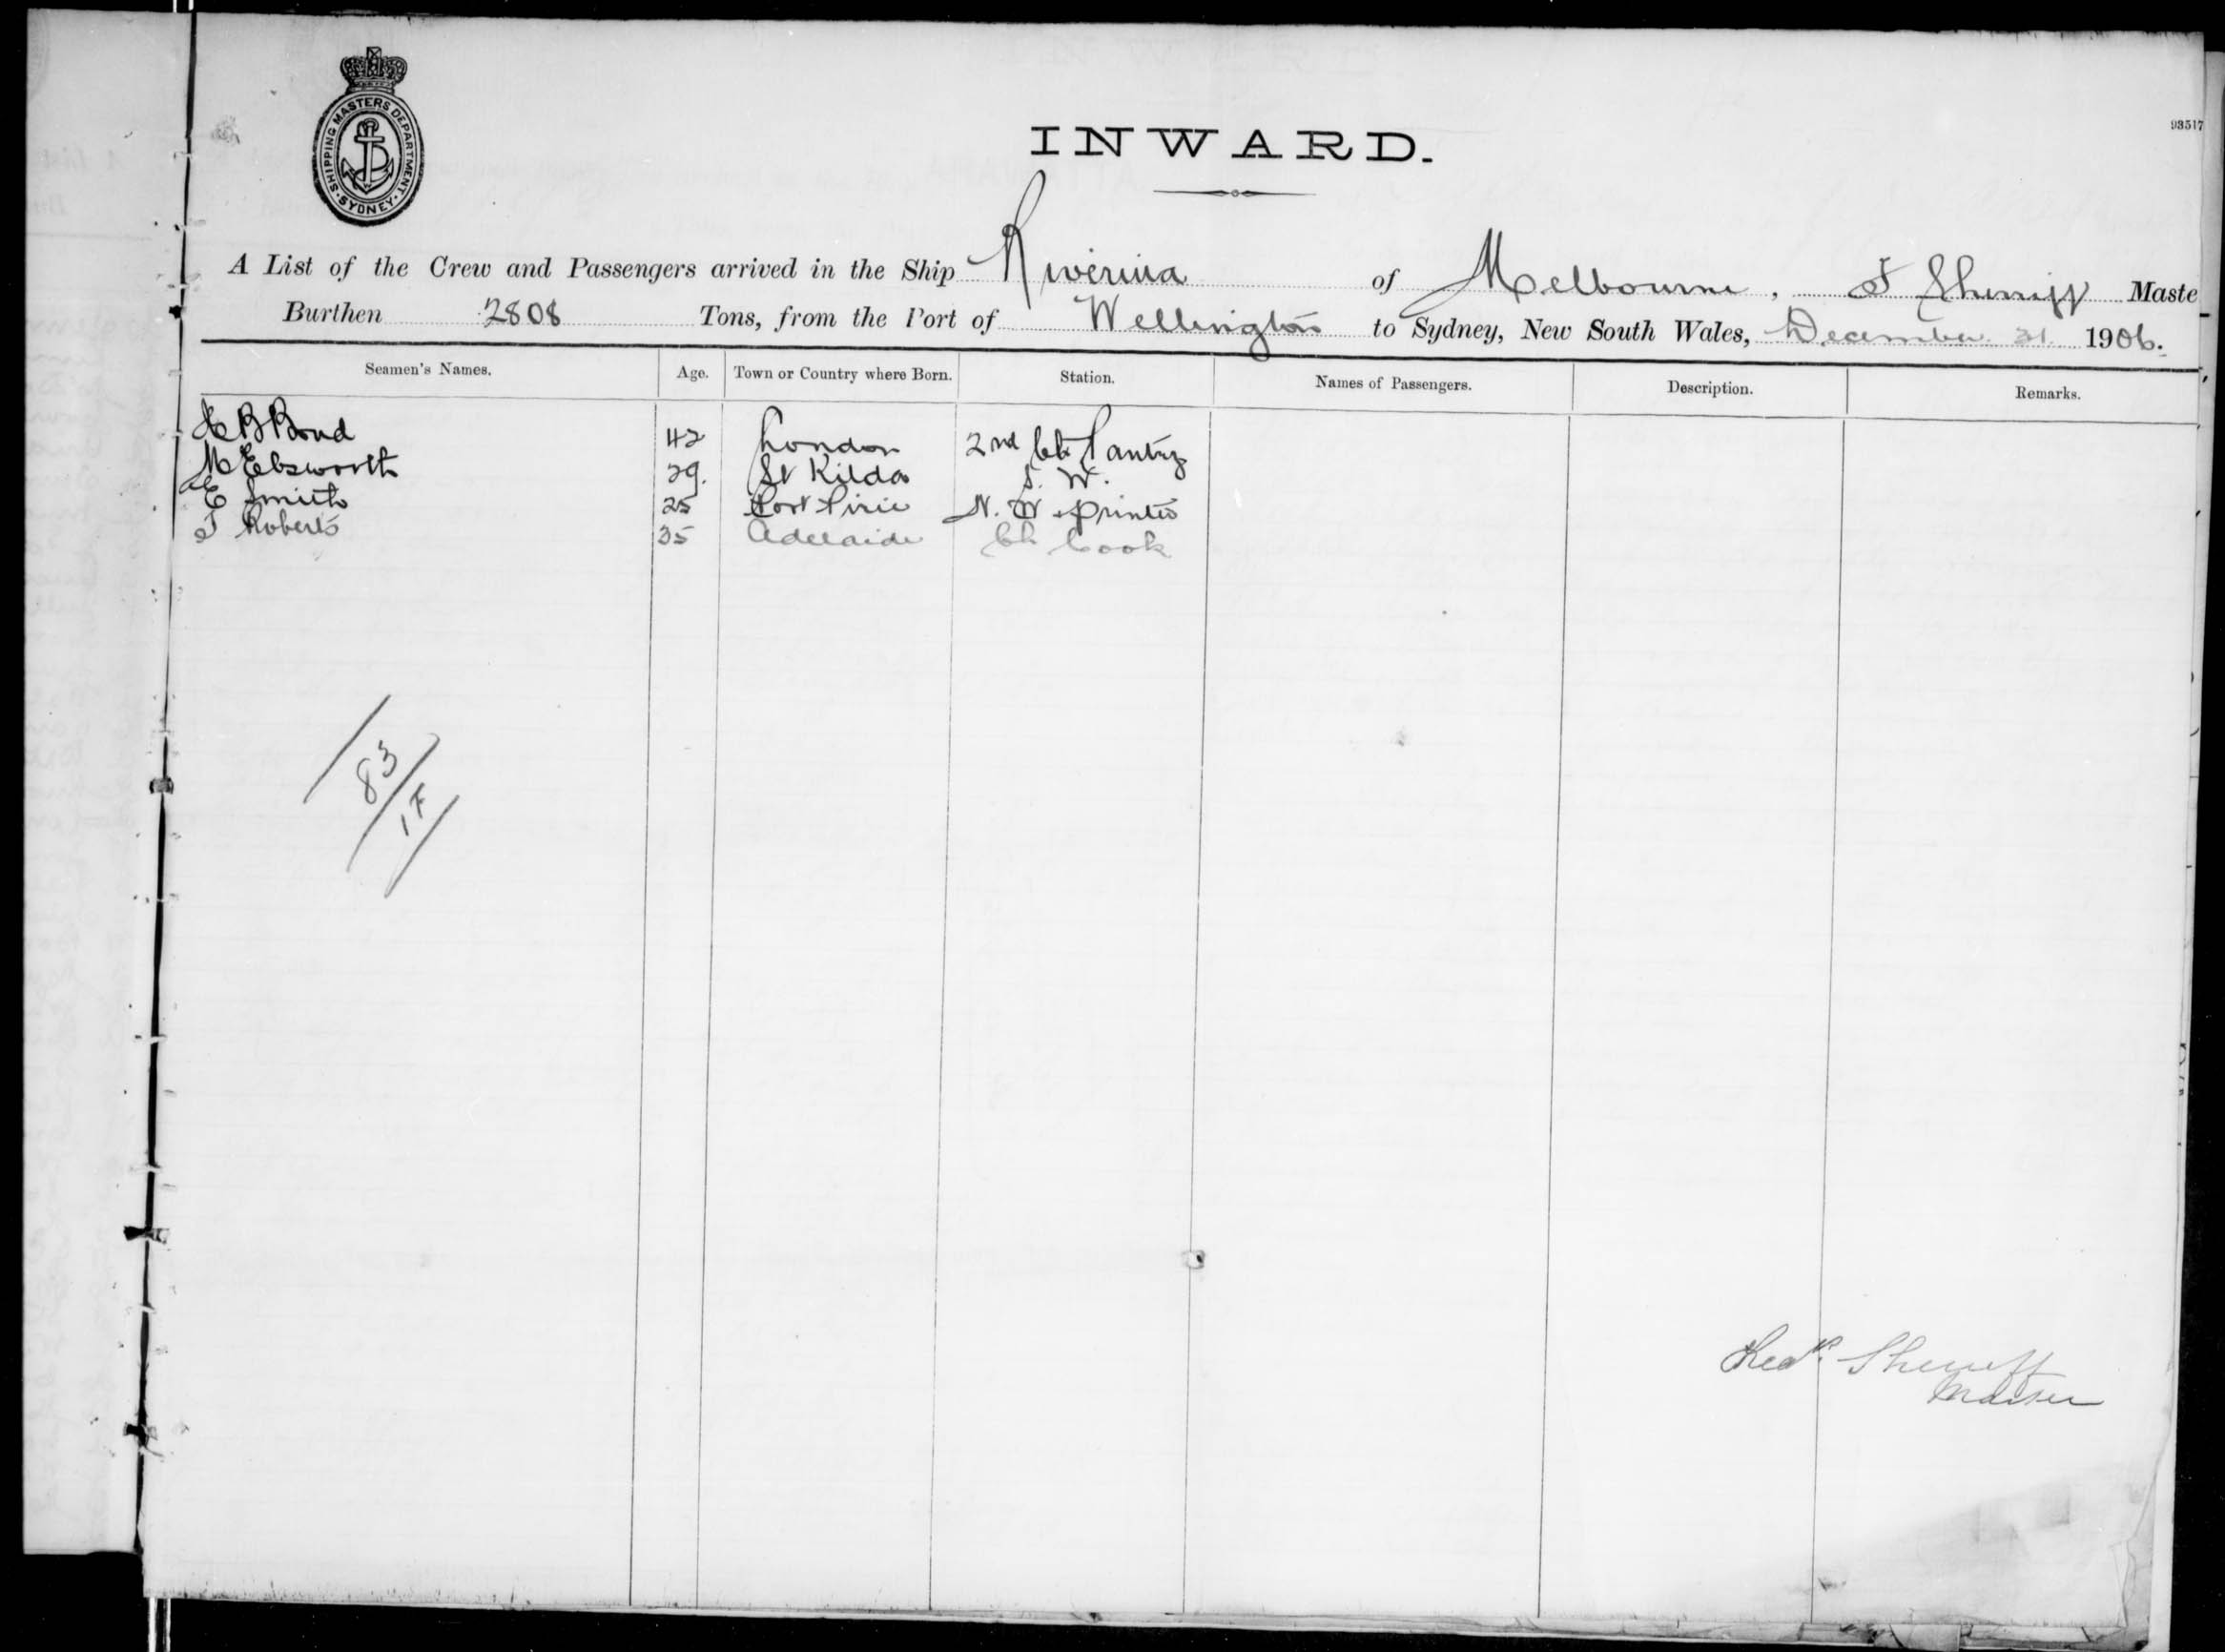 SHIPPING MASTERS DEPARTMENT. SYDNEY.
93517
INWARD.
A List of the Crew and Passengers arrived in the Ship Riverina of Melbourne, T Sherriff Maste
Burthen 2808 Tons, from the Port of Wellington to Sydney, New South Wales, December 31 1906.
Seamen's Names. Age. Town or Country where Born. Station. Names of Passengers. Description. Remarks.
H B Bond 42 London 2nd Cl. Pantry
M Ebsworth 29. St Kilda S. W.
E Smith 25 Port Pirie N. W & Printer
T Roberts 35 Adelaide Ch Cook
83
17
Sherriff
Master